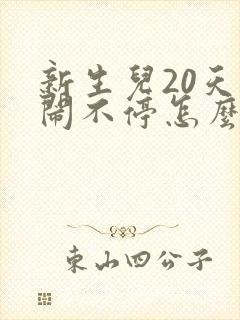 新生兒20天
鬧不停怎麼
東山四公子